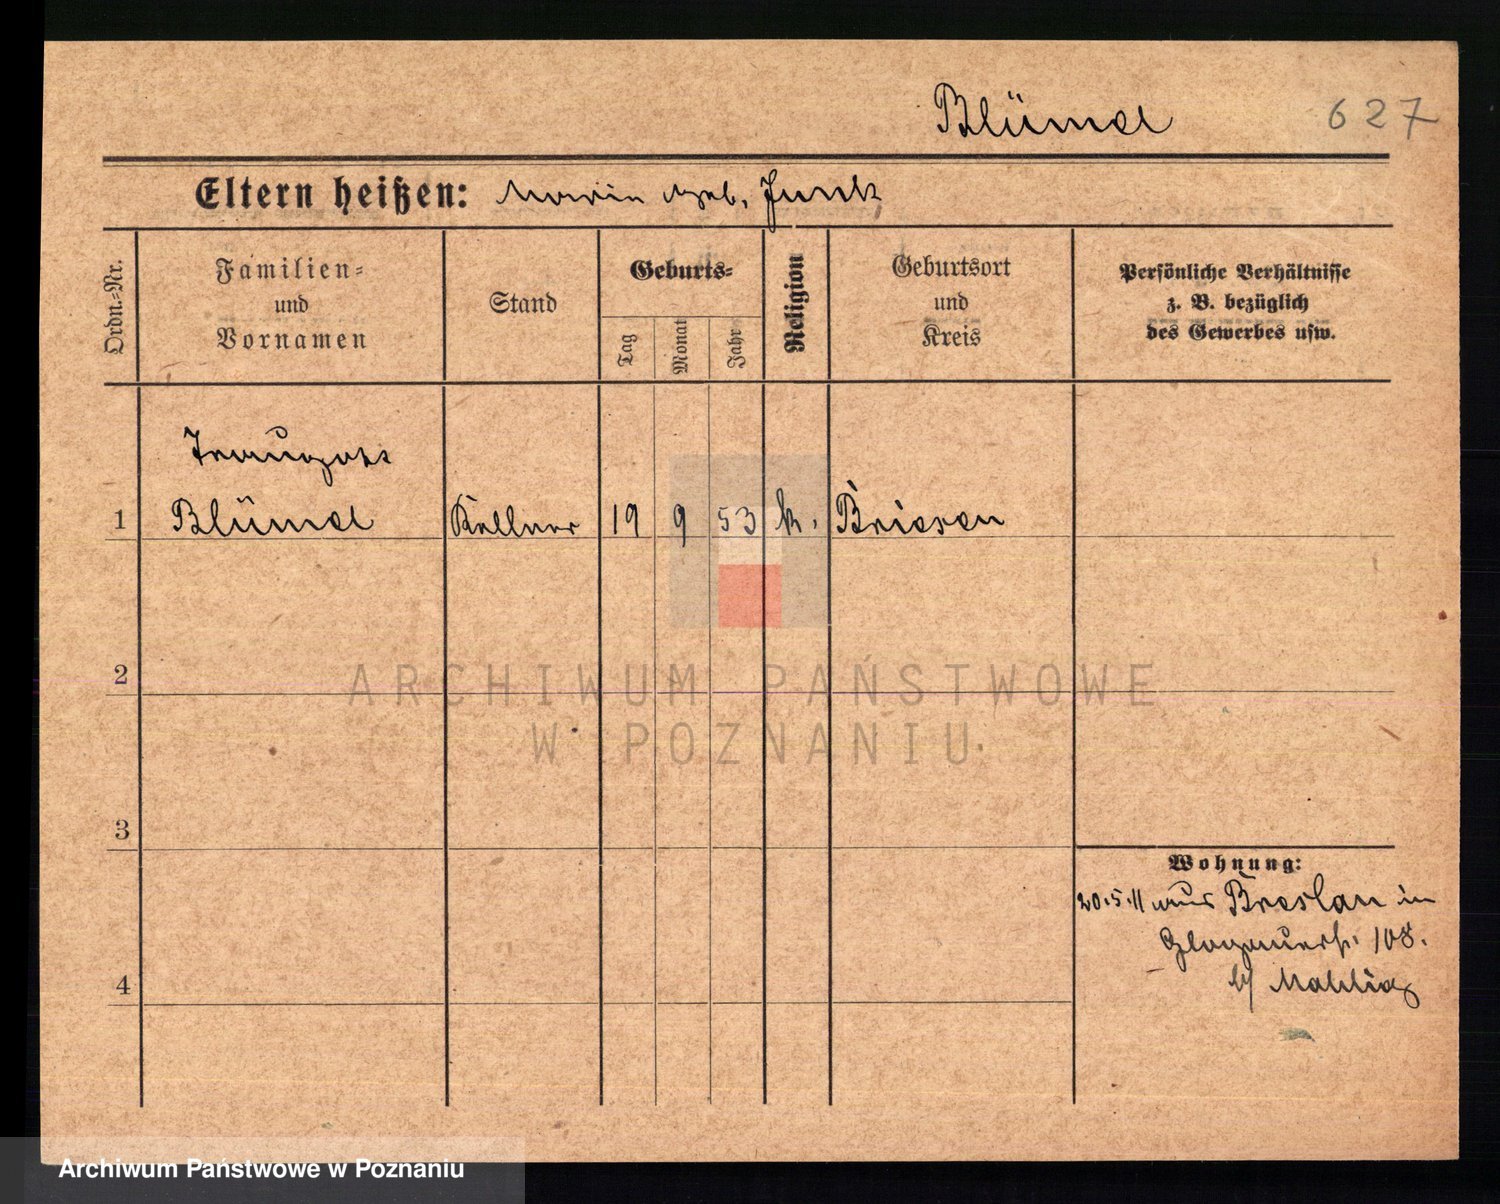 Blümel
627
Eltern heißen: Marie geb. Junk
Ordn.=Nr.
Familien=
und
Vornamen
Stand
Geburts=
Tag
Monat
Jahr
Religion
Geburtsort
und
Kreis
Persönliche Verhältnisse
z. B. bezüglich
des Gewerbes usw.
Traugott
1 Blümel Kellner 19 9 53 k. Briesen
2
3
4
Wohnung:
20.5.11 aus Breslau in
Glogauerstr. 108.
b/
ARCHIWUM PAŃSTWOWE
W POZNANIU
Archiwum Państwowe w Poznaniu